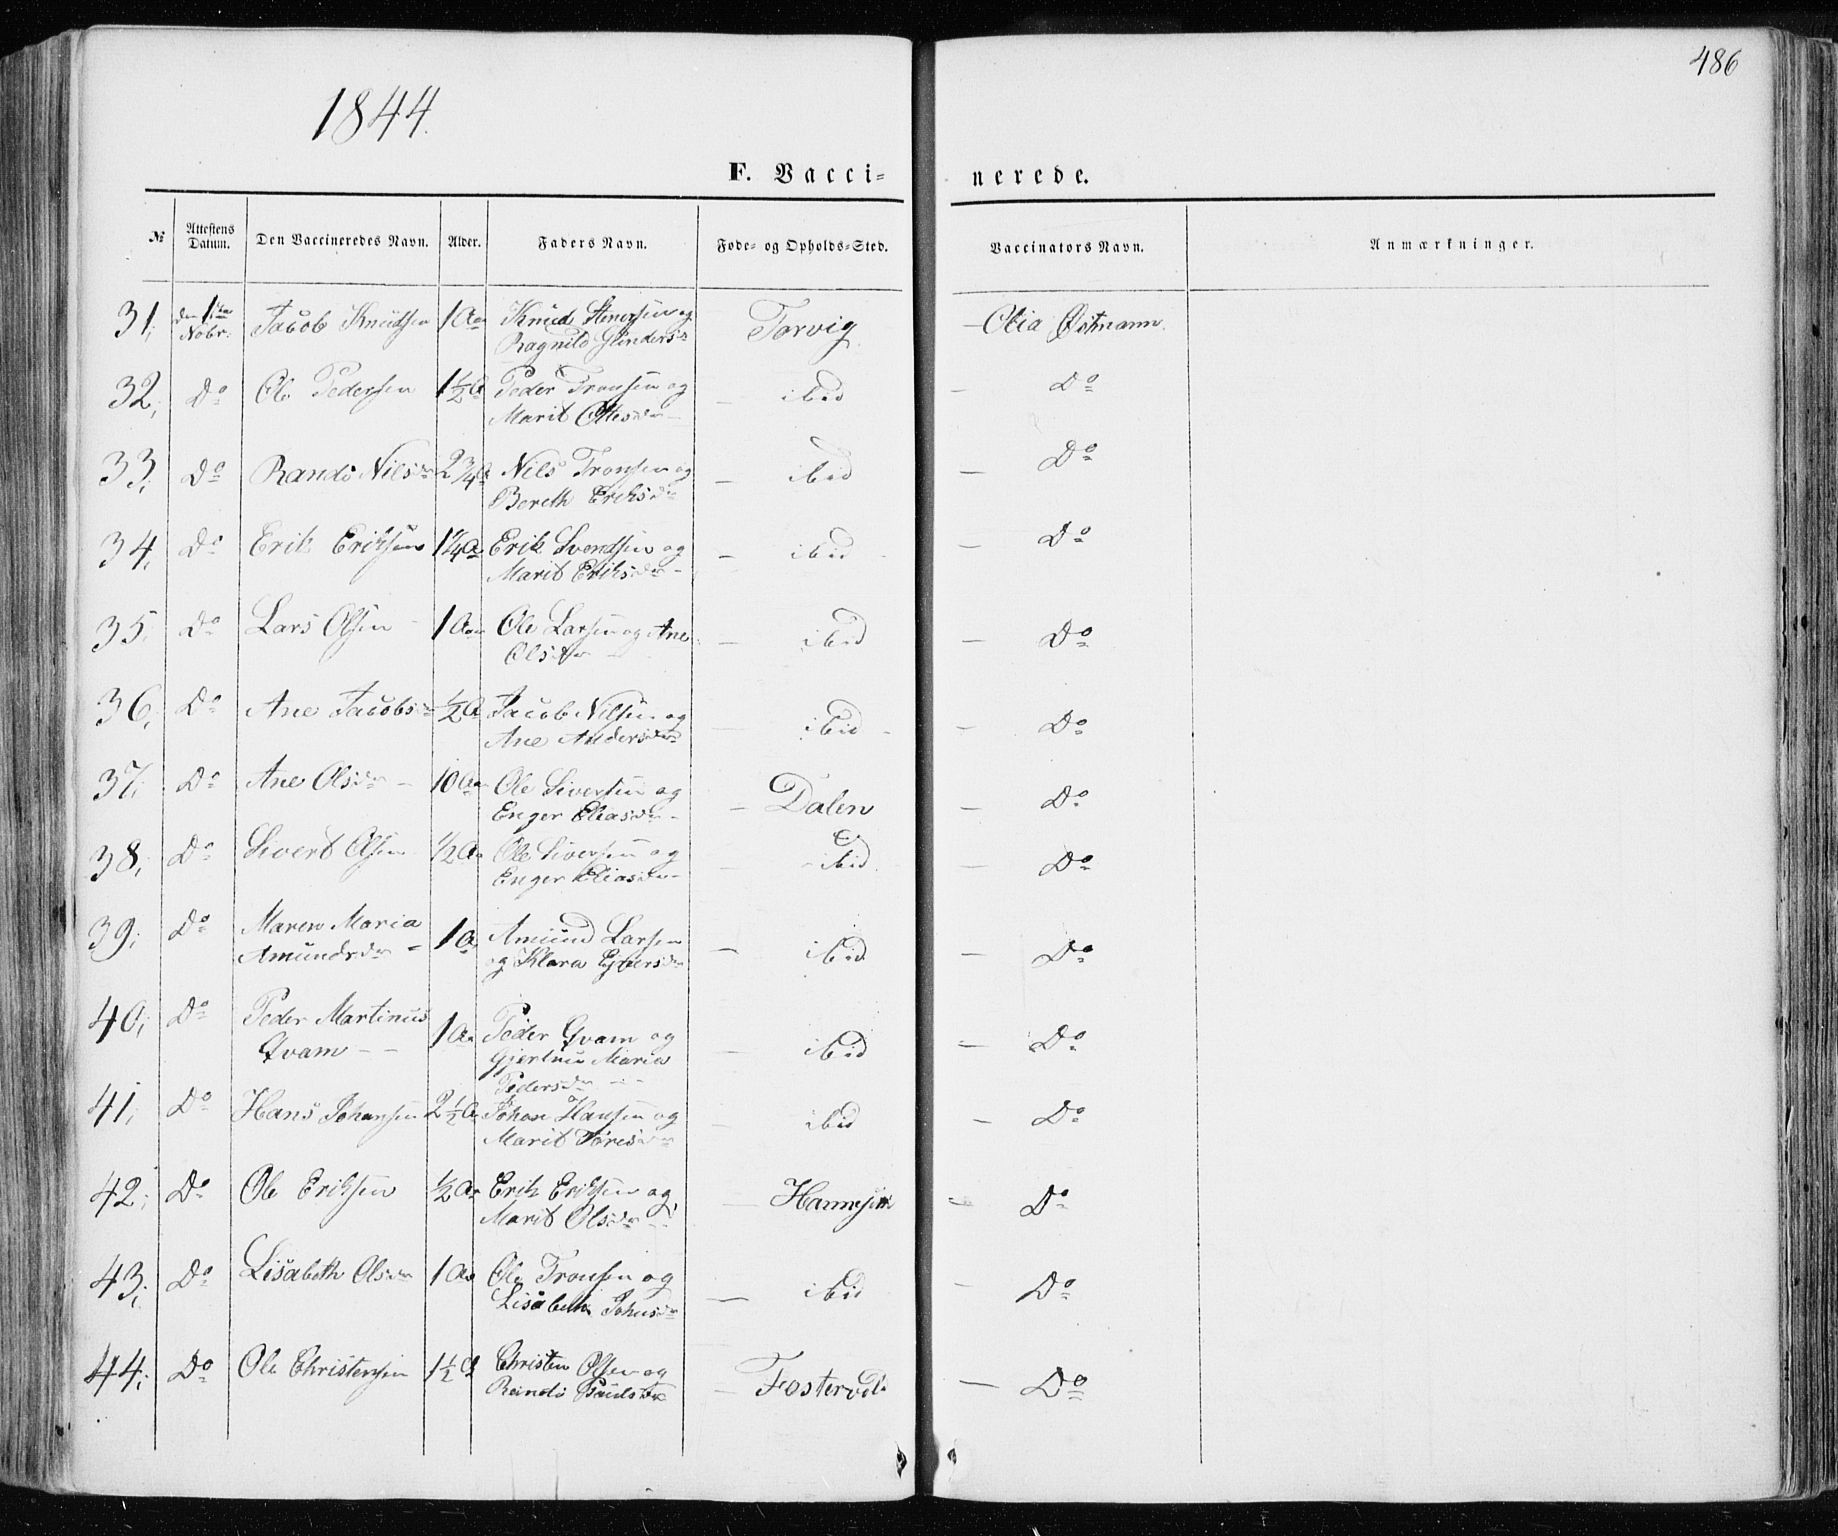 486
1844.
F. Vacci- nerede.
№ Attestens Datum. Den Vaccineredes Navn. Alder. Faders Navn. Føde- og Opholds-Sted. Vaccinators Navn. Anmærkninger.
31; den 1ste Nobr. Jacob Knudsen 1 Aar Knud Stenersen og Torvig - Olia Østmann.
Ragnild
32; Do Ole Pedersen 1½ A Peder Tronsen og - ibid - Do
Marit Olesdr -
33; Do Randi Nilsdr 2¾ A Nils Tronsen og - ibid - Do
Bereth Eriksdr
34; Do Erik Eriksen 1¼ Aa Erik Svendsen og - ibid - Do
Marit Eriksdr -
35; Do Lars Olsen - 1 Aar Ole Larsen og Ane - ibid - Do
Olsdr -
36; Do Ane Jacobsdr ½ A Jacob Nilsen og - ibid - Do
Ane Andersdr
37; Do Ane Olsdr - 10 Aa Ole Sivertsen og - Dalen - Do
Enger Eliasdr -
38; Do Sivert Olsen ½ Aa Ole Siversen og - ibid - Do
Enger Eliasdr -
39; Do Maren Maria
Amundsdr - 1 A Amund Larsen - ibid - Do
og Klara Ejlersdr
40; Do Peder Martinus
Qvam - - 1 Aa Peder Qvam og - ibid - Do
Gjertrue Maria
Pedersdr - -
41; Do Hans Johansen 2½ A Johan Hansen og - ibid - Do
Marit Toresdr
42; Do Ole Eriksen ½ Aa Erik Eriksen og - - Do
Marit Olsdr -
43; Do Lisabeth Olsdr 1 Aa Ole Tronsen og - ibid - Do
Lisabeth Johnsdr
44; Do Ole Christensen 1½ A Christen Olsen og - Fostervold - Do
Randi